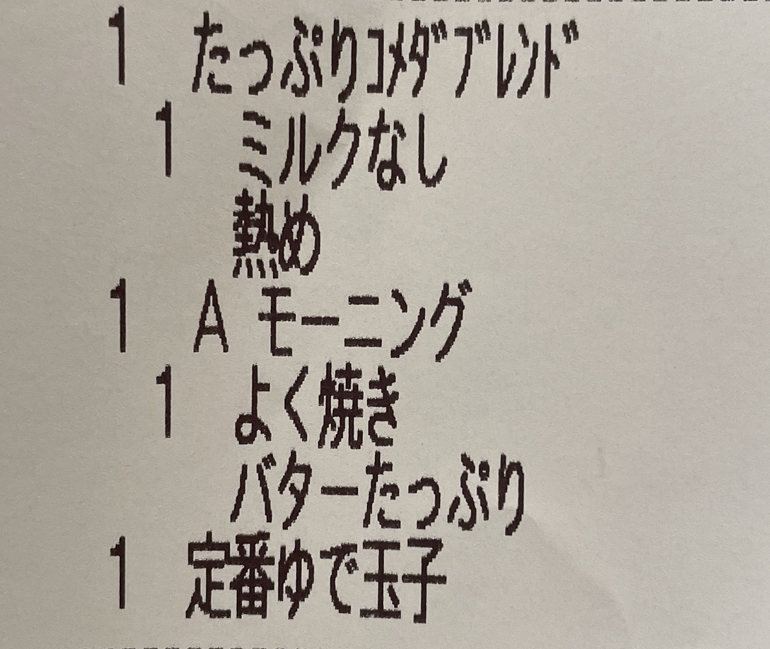 1 たっぷりｺﾒﾀﾞﾌﾞﾚﾝﾄﾞ
1 ミルクなし
熱め
1 A モーニング
1 よく焼き
バターたっぷり
1 定番ゆで玉子